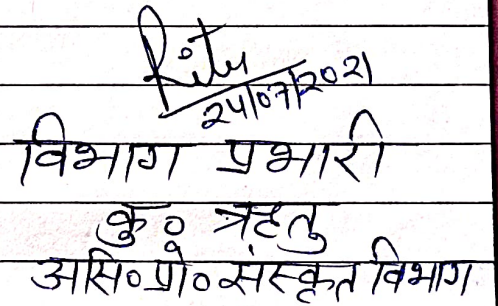 Ritu
24/07/2021
विभाग प्रभारी
कु० ऋतु
असि०प्रो० संस्कृत विभाग